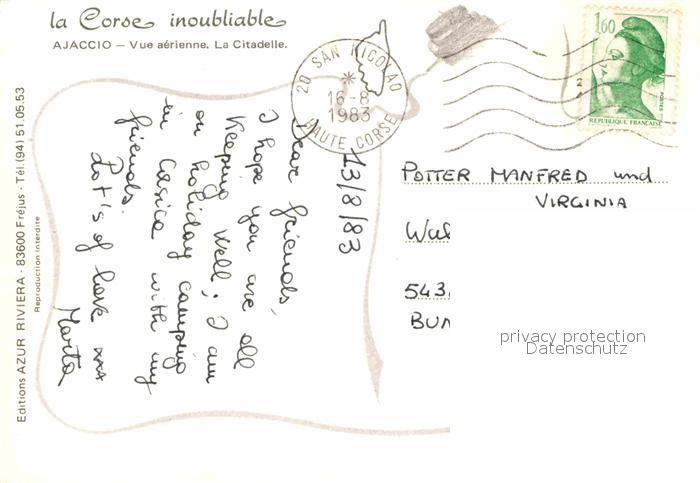 la Corse inoubliable
AJACCIO — Vue aérienne. La Citadelle.
20 SAN NICOLAO
16-8
1983
HAUTE CORSE
1,60
POSTES
REPUBLIQUE FRANÇAISE
Editions AZUR RIVIERA - 83600 Fréjus - Tél. (94) 51.05.53
Reproduction Interdite
13/8/83
Dear friends,
I hope you are all
keeping well; I am
on holiday camping
in Corsica with my
friends.
Lot's of love xxx
Marta
POTTER MANFRED und
VIRGINIA
543
BUN
privacy protection
Datenschutz